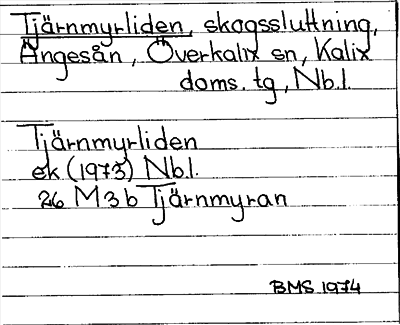 Tjärnmyrliden, skogssluttning,
Ängesån, Överkalix sn, Kalix
doms. tg, Nb.l.
Tjärnmyrliden
ek (1973) Nb.l.
26 M 3 b Tjärnmyran
BMS 1974